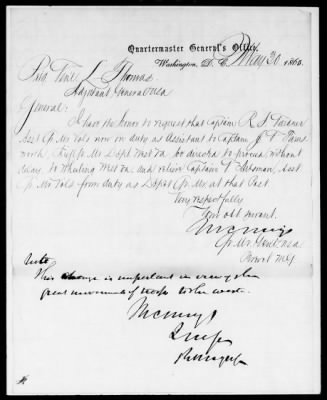 Quartermaster General's Office,
Washington, D. C. May 30 1865.
Brig Genl L Thomas
Adjutant General USA
General:
I have the honor to request that Captain R S
Asst Qr Mr Vols now on duty as Assistant to Captain J T
worth, Chief Qr Mr Dept West Va be directed to proceed without
delay to Wheeling West Va. and relieve Captain Asst
Qr Mr Vols from duty as Depot Qr Mr at that Post
Very respectfully
Your obt servant.
M C Meigs
Qr Mr Genl USA
Brevet M G
Note
This change is important in view of the
great movement of troops to the west.
M C Meigs